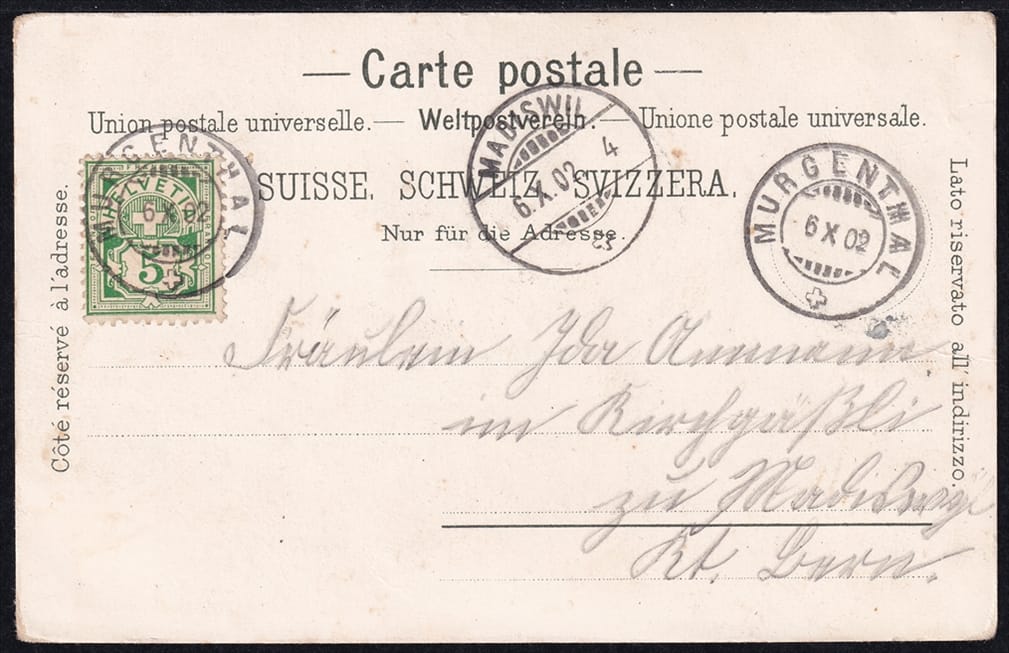 — Carte postale —
Union postale universelle. — Weltpostverein. — Unione postale universale.
SUISSE. SCHWEIZ. SVIZZERA.
Nur für die Adresse.
Côté réservé à l'adresse.
Lato riservato all' indirizzo.
HELVETIA
5
MURGENTHAL
6 X 02
MADISWIL
6.X.02 4
MURGENTHAL
6 X 02
Fräulein Ida Ammann
im Kirchgäßli
zu Madiswyl
Kt. Bern.